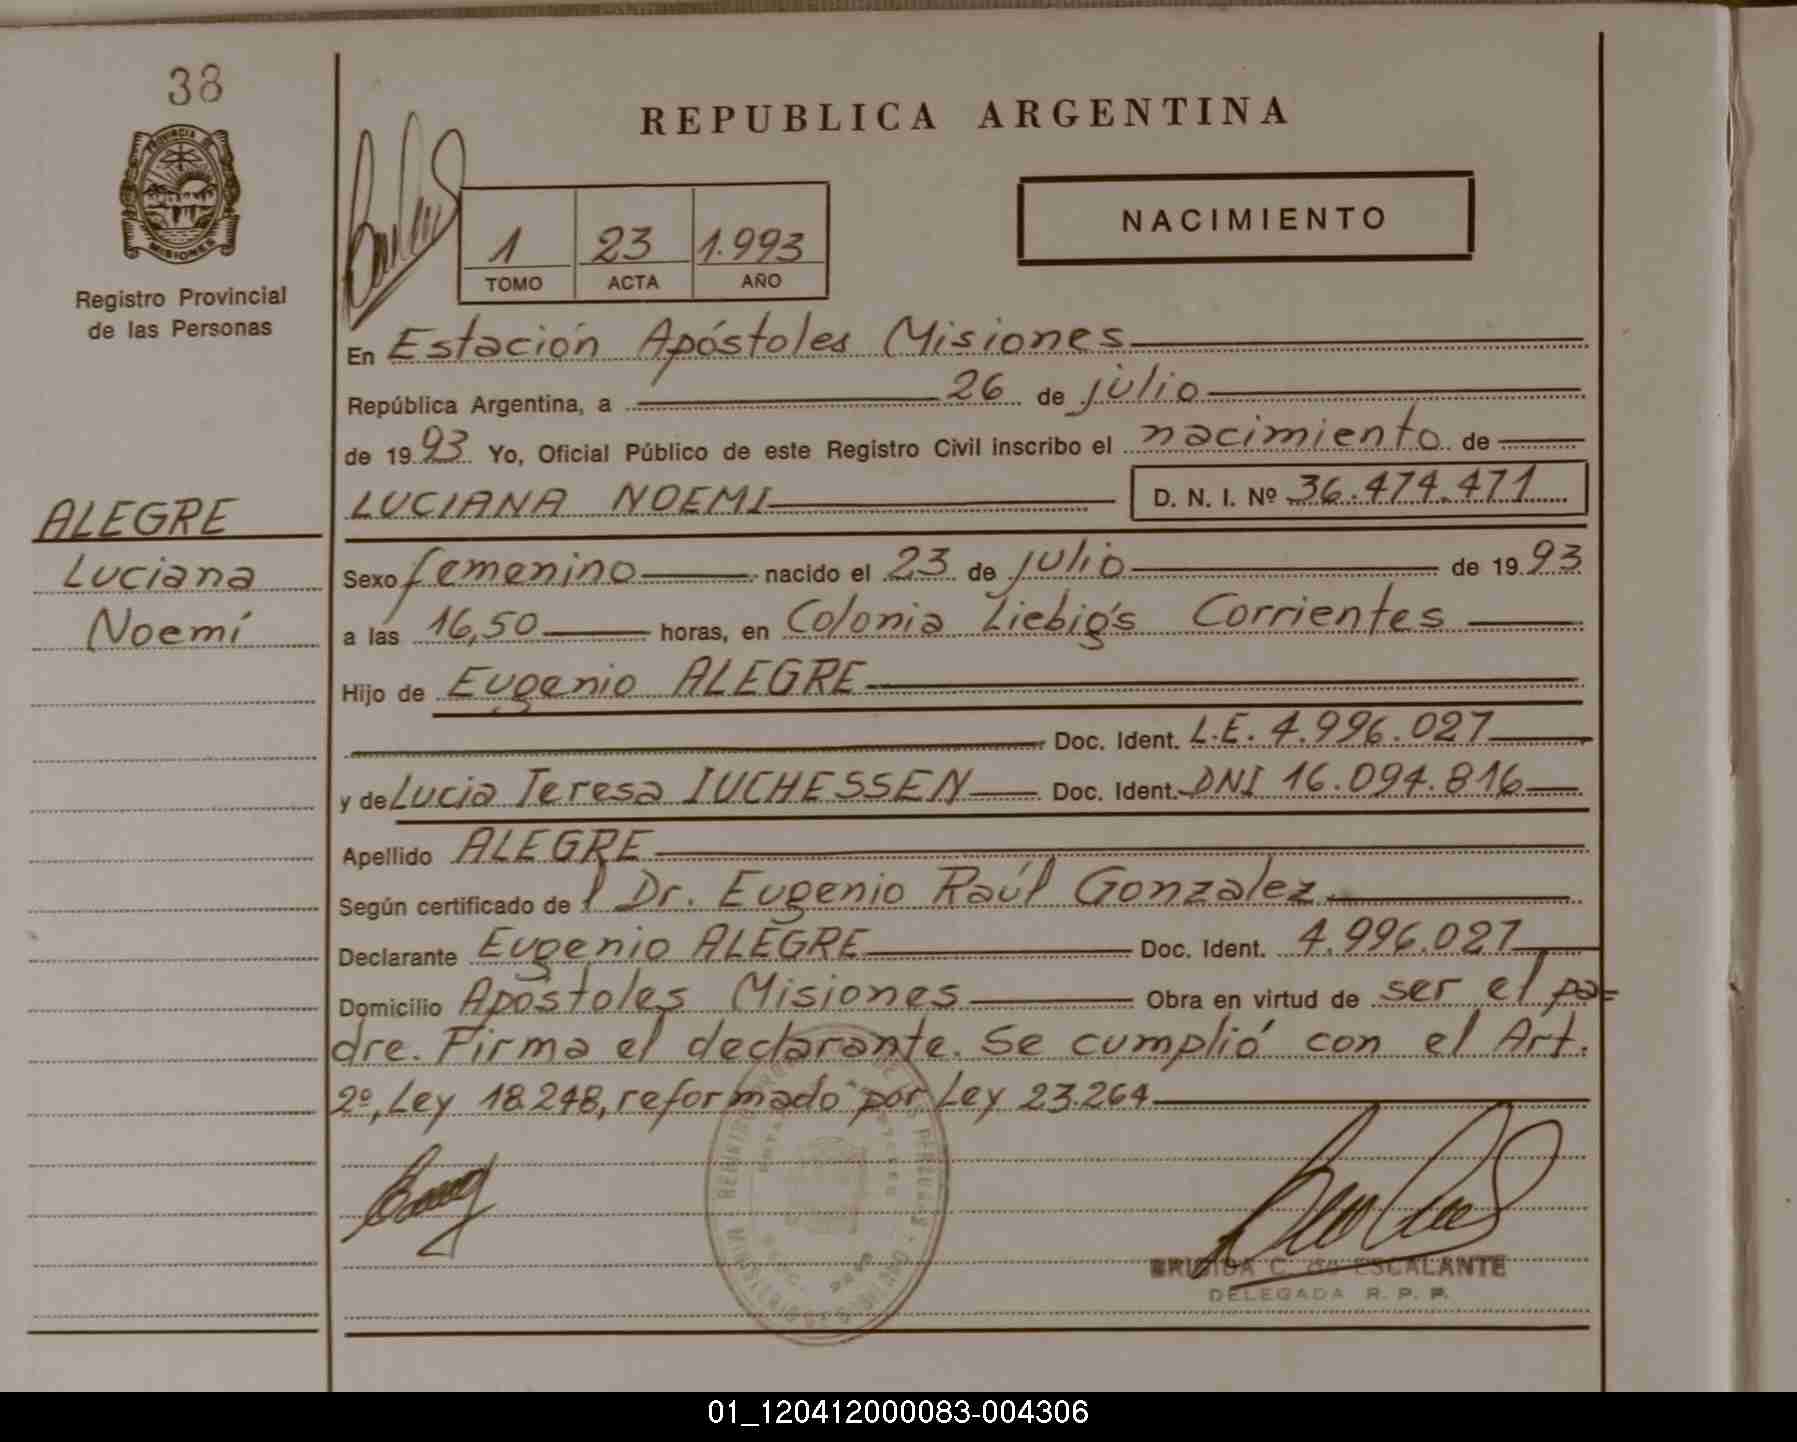 38
PROVINCIA DE
MISIONES
Registro Provincial
de las Personas
REPUBLICA ARGENTINA
NACIMIENTO
1 23 1.993
TOMO ACTA AÑO
En Estación Apóstoles Misiones
República Argentina, a 26 de julio
de 1993 Yo, Oficial Público de este Registro Civil inscribo el nacimiento de
LUCIANA NOEMI D. N. I. Nº 36.474.471
ALEGRE
Luciana
Noemí
Sexo femenino nacido el 23 de julio de 1993
a las 16,50 horas, en Colonia Liebig's Corrientes
Hijo de Eugenio ALEGRE
Doc. Ident. L.E. 4.996.027
y de Lucia Teresa IUCHESSEN Doc. Ident. DNI 16.094.816
Apellido ALEGRE
Según certificado de l Dr. Eugenio Raúl Gonzalez
Declarante Eugenio ALEGRE Doc. Ident. 4.996.027
Domicilio Apóstoles Misiones Obra en virtud de ser el pa=
dre. Firma el declarante. Se cumplió con el Art.
2º, Ley 18.248, reformado por Ley 23.264
BRIGIDA C. de ESCALANTE
DELEGADA R. P. P.
01_120412000083-004306